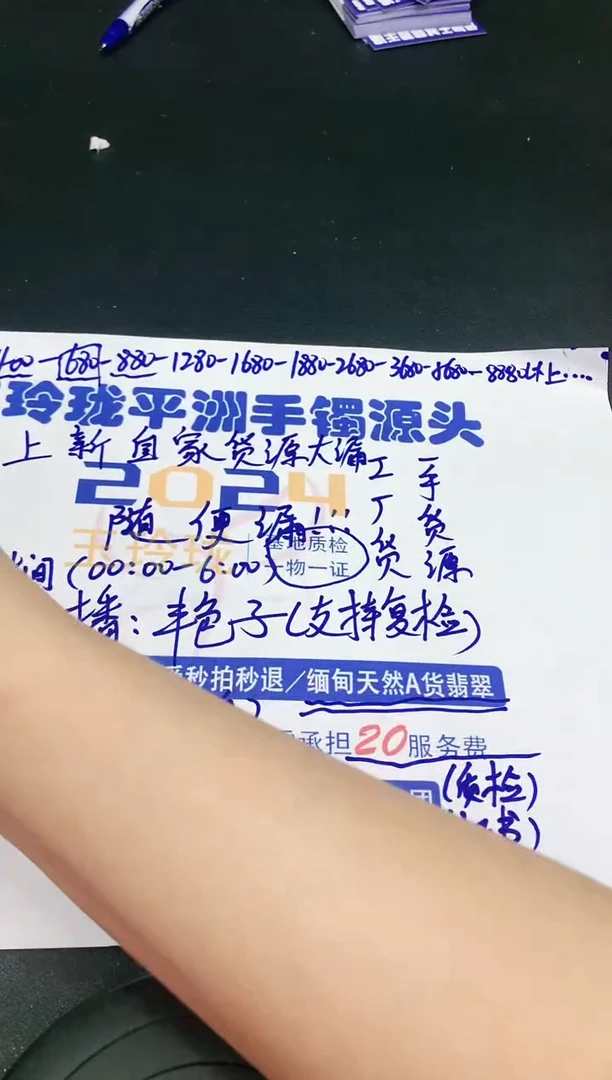 400-1680-880-1280-1680-1880-2680-3680-8680-8880以上....
玲珑平洲手镯源头
上新自家货源大漏
2024
工厂货
一手货源
随便漏!!!
玉玲珑
基地质检
一物一证
间(00:00-6:00)
播:半色子(支持复检)
秒拍秒退/缅甸天然A货翡翠
承担20服务费
团(质检)
书)